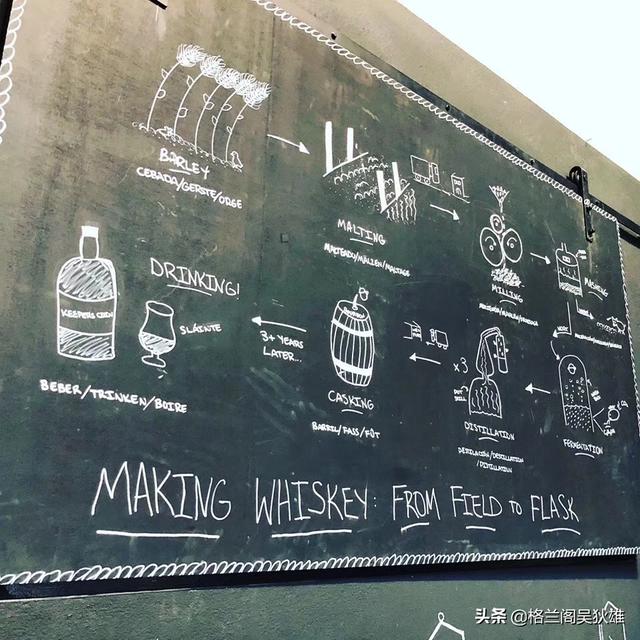 BARLEY
CEBADA/GERSTE/ORGE
MALTING
MALTEADO/MÄLZEN/MALTAGE
MILLING
MASHING
FERMENTATION
x3
POT STILL
DISTILLATION
DESTILACIÓN/DESTILLATION
/DISTILLATION
CASKING
BARRIL/FASS/FÛT
3+ YEARS
LATER...
DRINKING!
KEEPERS COIN
SLÁINTE
BEBER/TRINKEN/BOIRE
MAKING WHISKEY: FROM FIELD TO FLASK
头条 @格兰阁吴狄雄